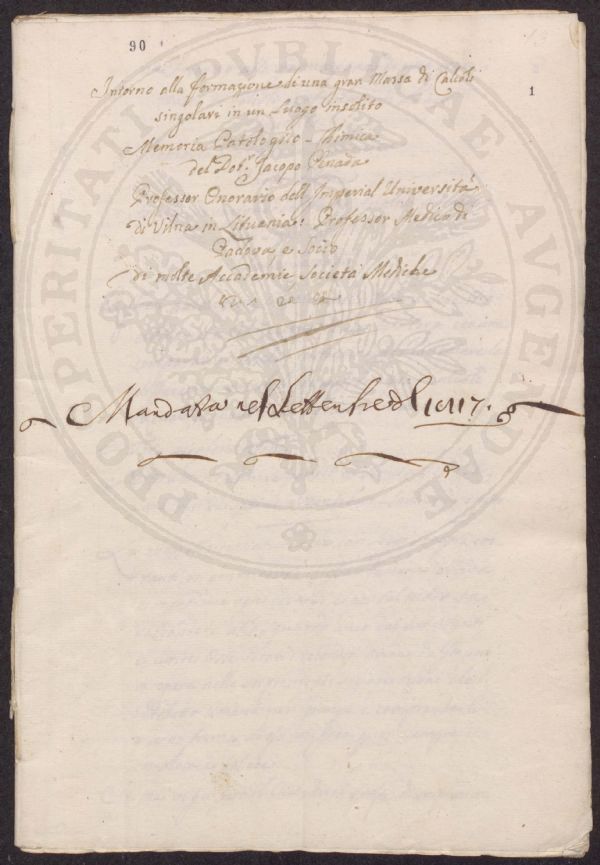 90
1
PROSPERITATI PVBLICAE AVGENDAE
Intorno alla formazione di una gran Massa di Calcoli
singolari in un Luogo insolito
Memoria Patologico-Chimica
del Dotr. Jacopo Penada
Professor Onorario dell'Imperial Università
di Vilna in Lituania: Professor Medico di
Padova e Socio
di molte Accademie Società Mediche
Mandata nel Settembre del 1817.